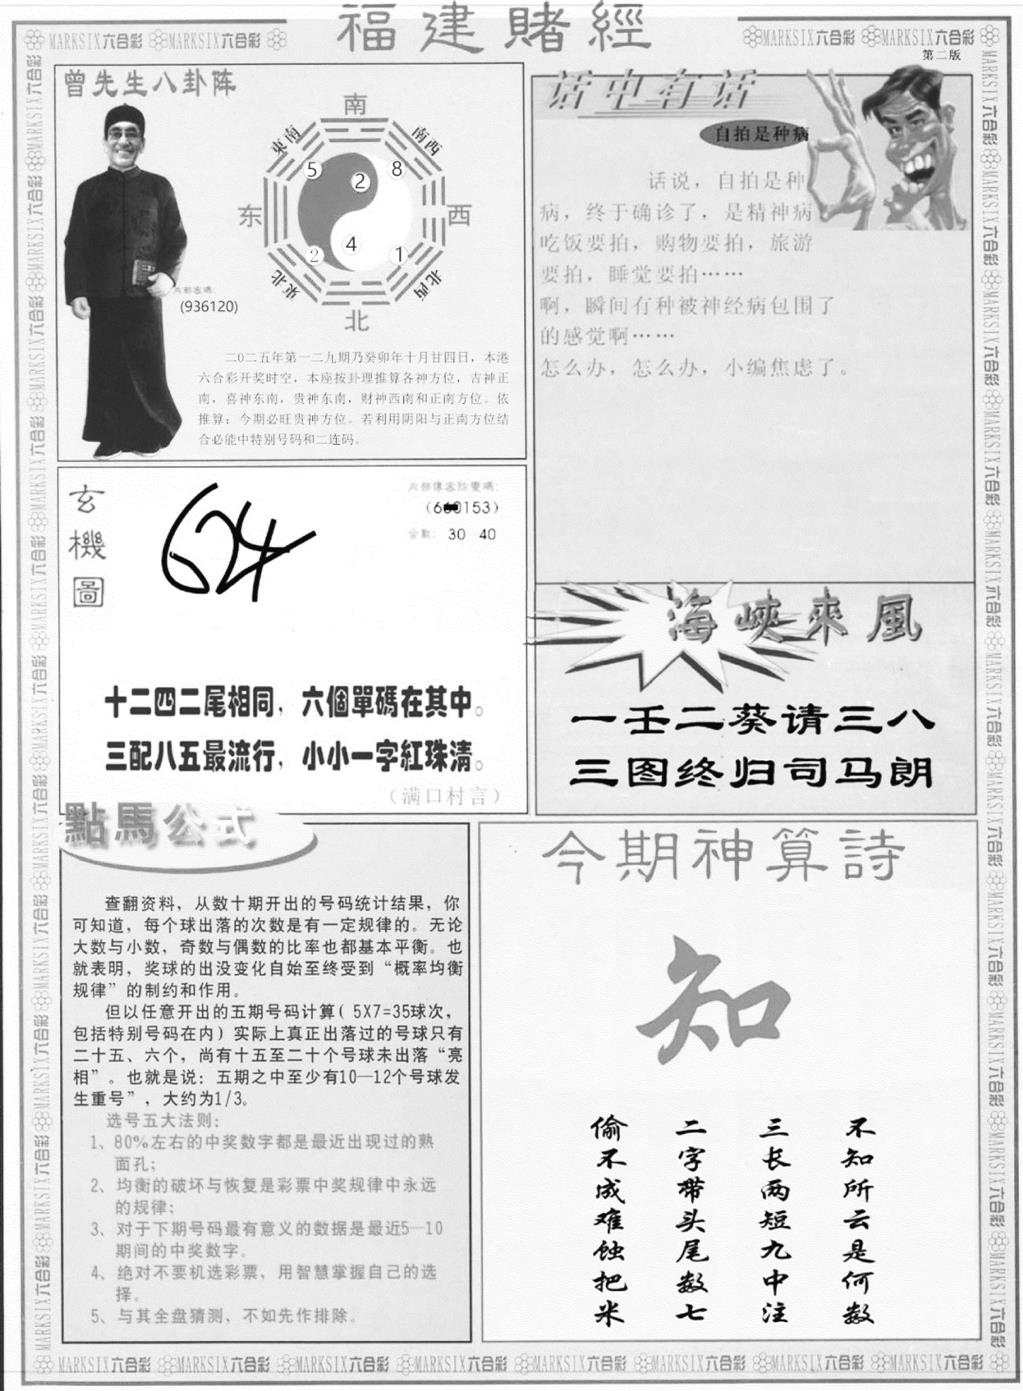 福建賭經
MARKSIX六合彩 MARKSIX六合彩
MARKSIX六合彩 MARKSIX六合彩
第二版
曾先生八卦阵
南
東南 南西
5 2 8
东 西
2 4 1
東北 北西
北
内部密碼:
(936120)
二0二五年第一二九期乃癸卯年十月廿四日，本港
六合彩开奖时空，本座按卦理推算各神方位，吉神正
南，喜神东南，贵神东南，财神西南和正南方位。依
推算：今期必旺贵神方位。若利用阴阳与正南方位结
合必能中特别号码和二连码。
话中有话
自拍是种病
话说，自拍是种
病，终于确诊了，是精神病
吃饭要拍，购物要拍，旅游
要拍，睡觉要拍……
啊，瞬间有种被神经病包围了
的感觉啊……
怎么办，怎么办，小编焦虑了。
玄機圖
624
30—40
十二四二尾相同，六個單碼在其中。
三配八五最流行，小小一字紅珠清。
（满口村言）
海峽來風
一壬二葵请三八
三图终归司马朗
點馬公式
查翻资料，从数十期开出的号码统计结果，你
可知道，每个球出落的次数是有一定规律的。无论
大数与小数，奇数与偶数的比率也都基本平衡。也
就表明，奖球的出没变化自始至终受到“概率均衡
规律”的制约和作用。
但以任意开出的五期号码计算( 5X7=35球次，
包括特别号码在内) 实际上真正出落过的号球只有
二十五、六个，尚有十五至二十个号球未出落“亮
相”。也就是说：五期之中至少有10—12个号球发
生重号”，大约为1/3。
选号五大法则：
1、80%左右的中奖数字都是最近出现过的熟
面孔；
2、均衡的破坏与恢复是彩票中奖规律中永远
的规律；
3、对于下期号码最有意义的数据是最近5—10
期间的中奖数字。
4、绝对不要机选彩票，用智慧掌握自己的选
择。
5、与其全盘猜测，不如先作排除。
今期神算詩
知
不知所云是何数
三长两短九中注
二字带头尾数七
偷不成难蚀把米
MARKSIX六合彩 MARKSIX六合彩 MARKSIX六合彩 MARKSIX六合彩 MARKSIX六合彩 MARKSIX六合彩 MARKSIX六合彩 MARKSIX六合彩